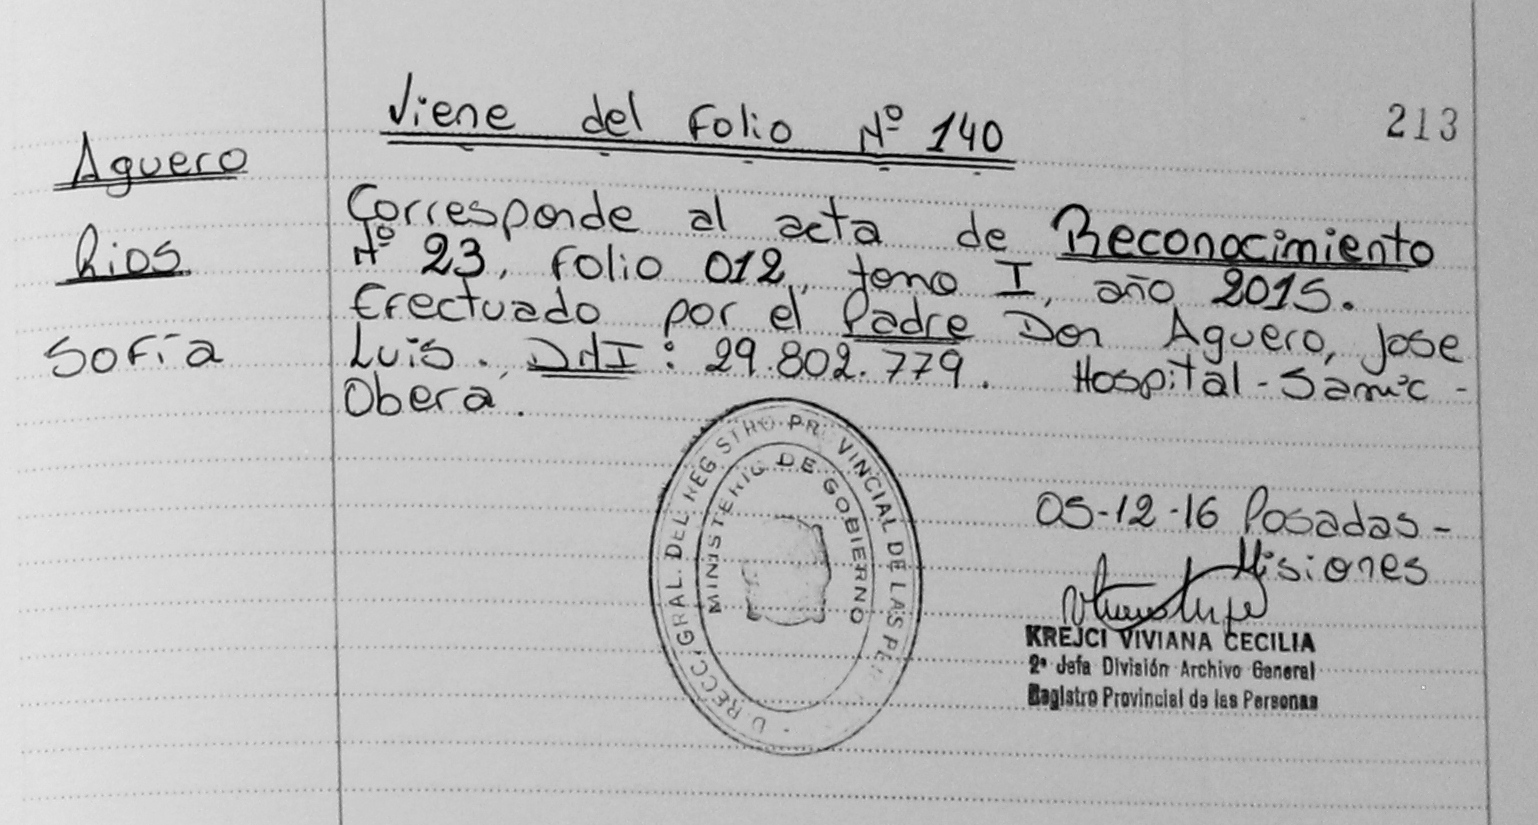 Viene del Folio Nº 140
213
Aguero
Rios
Sofía
Corresponde al acta de Reconocimiento
Nº 23, folio 012, tomo I, año 2015.
Efectuado por el Padre Don Aguero, Jose
Luis. DNI: 29.802.779. Hospital - Samic -
Obera.
DIRECC. GRAL. DEL REGISTRO PROVINCIAL DE LAS
MINISTERIO DE GOBIERNO
05-12-16 Posadas -
Misiones
KREJCI VIVIANA CECILIA
2ª Jefa División Archivo General
Registro Provincial de las Personas